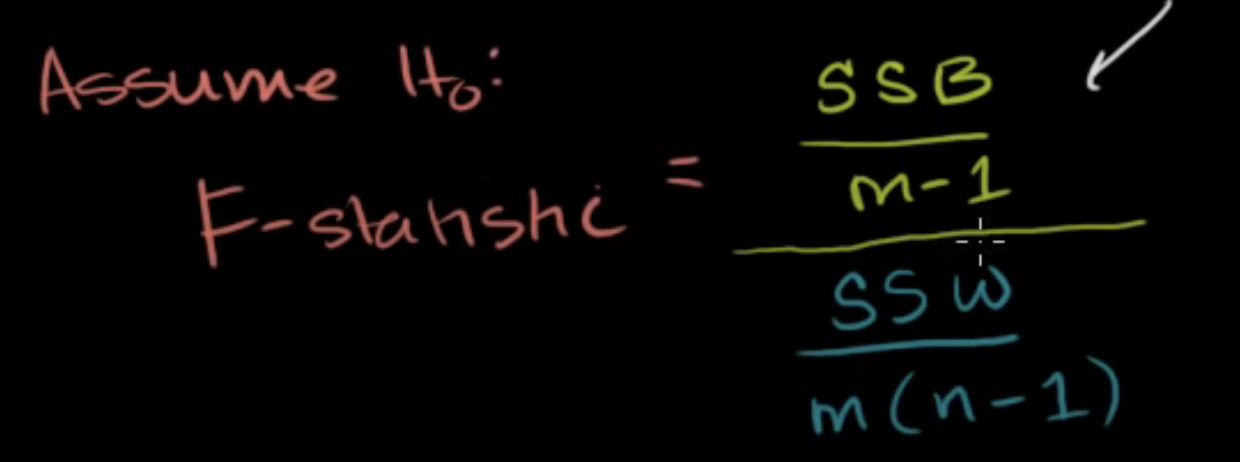 Assume H₀:
F-statistic = 
SSB
m-1
SSW
m(n-1)